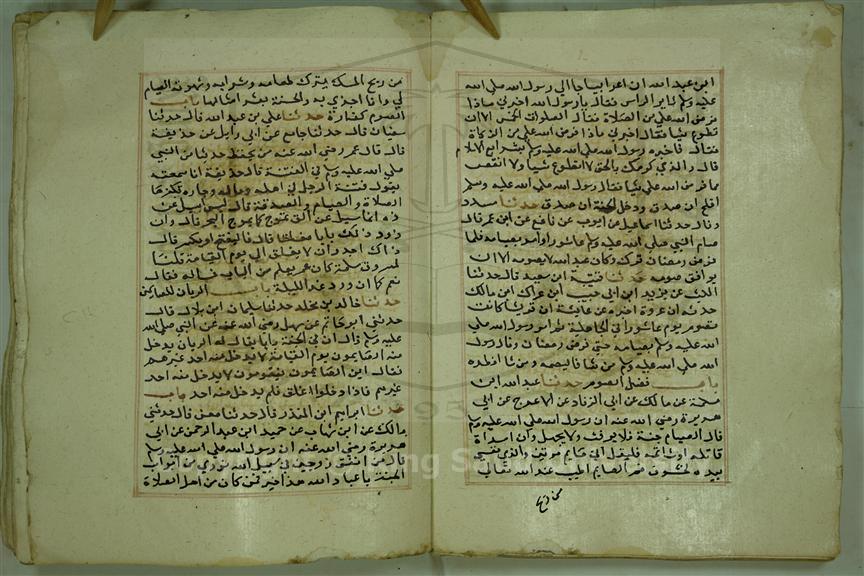 ابن عبد الله ان اعرابيا جا الى رسول الله صلى الله
عليه وسلم ثاير الراس فقال يا رسول الله اخبرني ماذا
فرض الله علي من الصلاة فقال الصلوات الخمس الا ان
تطوع شيا فقال اخبرني ماذا فرض الله علي من الزكاة
فقال فاخبره رسول الله صلى الله عليه وسلم بشرايع الاسلام
قال والذي كرمك بالحق لا اتطوع شيا ولا انقص
مما فرض الله علي شيا فقال رسول الله صلى الله عليه وسلم
افلح ان صدق ودخل الجنة ان صدق حدثنا مسدد
وقال حدثنا اسماعيل عن ايوب عن نافع عن ابن عمر قال
صام النبي صلى الله عليه وسلم عاشورا وامر بصيامه فلما
فرض رمضان ترك وكان عبد الله لا يصومه الا ان
يوافق صومه حدثنا قتيبة ابن سعيد قال حدثنا
الليث عن يزيد ابن ابي حبيب ان عراك ابن مالك
حدثه ان عروة اخبره عن عايشة ان قريشا كانت
تصوم يوم عاشورا في الجاهلية ثم امر رسول الله صلى
الله عليه وسلم بصيامه حتى فرض رمضان وقال رسول
الله صلى الله عليه وسلم من شا فليصمه ومن شا افطره
باب فضل الصوم حدثنا عبد الله ابن
مسلمة عن مالك عن ابي الزناد عن الاعرج عن ابي
هريرة رضي الله عنه ان رسول الله صلى الله عليه وسلم
قال الصيام جنة فلا يرفث ولا يجهل وان امراة
قاتله او شاتمه فليقل اني صايم مرتين والذي نفسي
بيده لخلوف فم الصايم اطيب عند الله تعالى
من ريح
من ريح المسك يترك طعامه وشرابه وشهوته الصيام
لي وانا اجزي به والحسنة بعشر امثالها باب
الصوم كفارة حدثنا علي بن عبد الله قال حدثنا
سفيان قال حدثنا جامع عن ابي وايل عن حذيفة
قال قال عمر رضي الله عنه من يحفظ حديثا من النبي
صلى الله عليه وسلم في الفتنة قال حذيفة انا سمعته
يقول فتنة الرجل في اهله وماله وجاره تكفرها
الصلاة والصيام والصدقة قال ليس اسيل عن
ذه انما اسيل عن التي تموج كما يموج البحر قال وان
دون ذلك بابا مغلقا قال فيفتح او يكسر قال
ذاك اجدر ان لا يغلق الى يوم القيامة فقلنا
لمسروق سله اكان عمر يعلم من الباب فساله فقال
نعم كما ان دون غد الليلة باب الريان للصايمين
حدثنا خالد بن مخلد حدثنا سليمان ابن بلال قال
حدثني ابو حاتم عن سهل رضي الله عنه عن النبي صلى الله
عليه وسلم قال ان في الجنة بابا يقال له الريان يدخل
منه الصايمون يوم القيامة لا يدخل منه احد غيرهم
يقال اين الصايمون فيقومون لا يدخل منه احد
غيرهم فاذا دخلوا اغلق فلم يدخل منه احد باب
حدثنا ابراهيم ابن المنذر قال حدثنا معن قال حدثني
مالك عن ابن شهاب عن حميد ابن عبد الرحمن عن ابي
هريرة رضي الله عنه ان رسول الله صلى الله عليه وسلم
قال من انفق زوجين في سبيل الله نودي من ابواب
الجنة يا عبد الله هذا خير فمن كان من اهل الصلاة